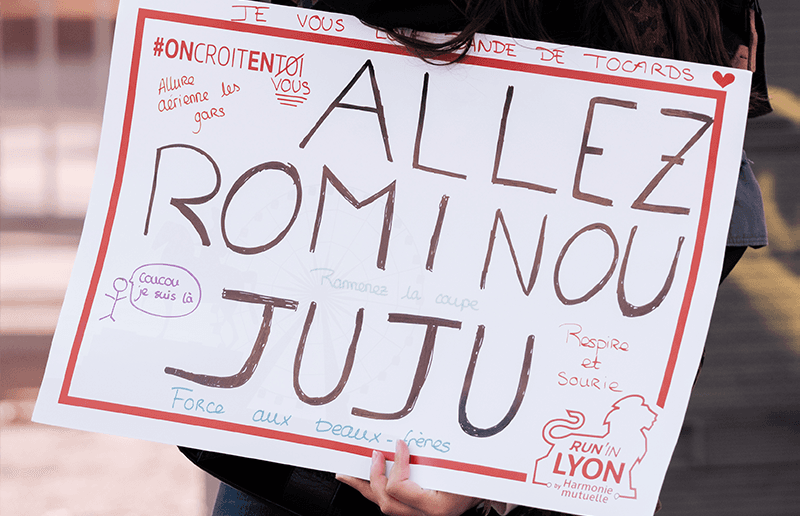 JE VOUS DE DE TOCARDS
#ONCROITENTOI
VOUS
Allure
aérienne les
gars
ALLEZ
ROMINOU
JUJU
coucou
je suis là
Ramenez la coupe
Respire
et
Sourie
Force aux beaux-frères
RUN'IN
LYON
by Harmonie
mutuelle